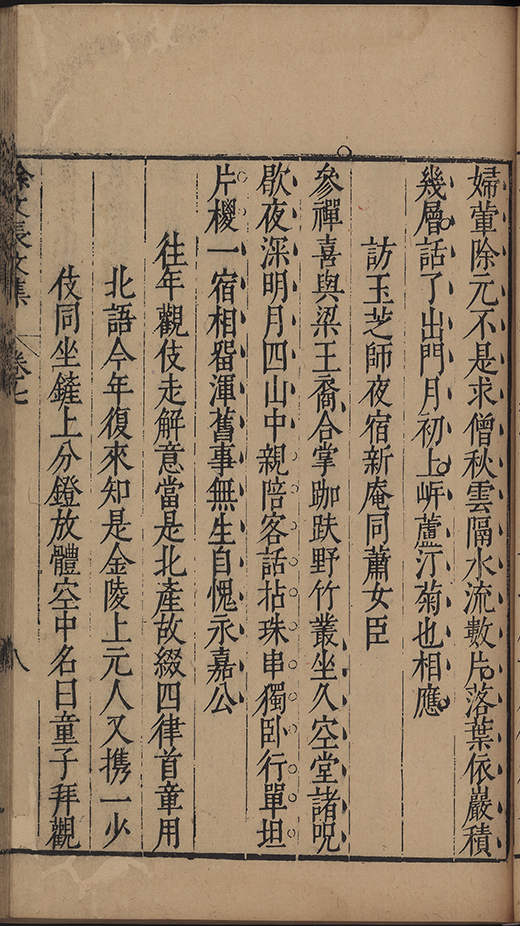 婦葷除元不是求僧秋雲隔水流數片落葉依巖積
幾層話了出門月初上㟁蘆汀菊也相應
訪玉芝師夜宿新庵同蕭女臣
參禪喜與梁王裔合掌跏趺野竹叢坐久空堂諸呪
歇夜深明月四山中親陪客話拈珠串獨卧行單坦
片椶一宿相畱渾舊事無生自愧永嘉公
往年觀伎走解意當是北產故綴四律首章用
北語今年復來知是金陵上元人又携一少
伎同坐鏟上分鐙放體空中名曰童子拜觀
徐文長文集 卷七 八